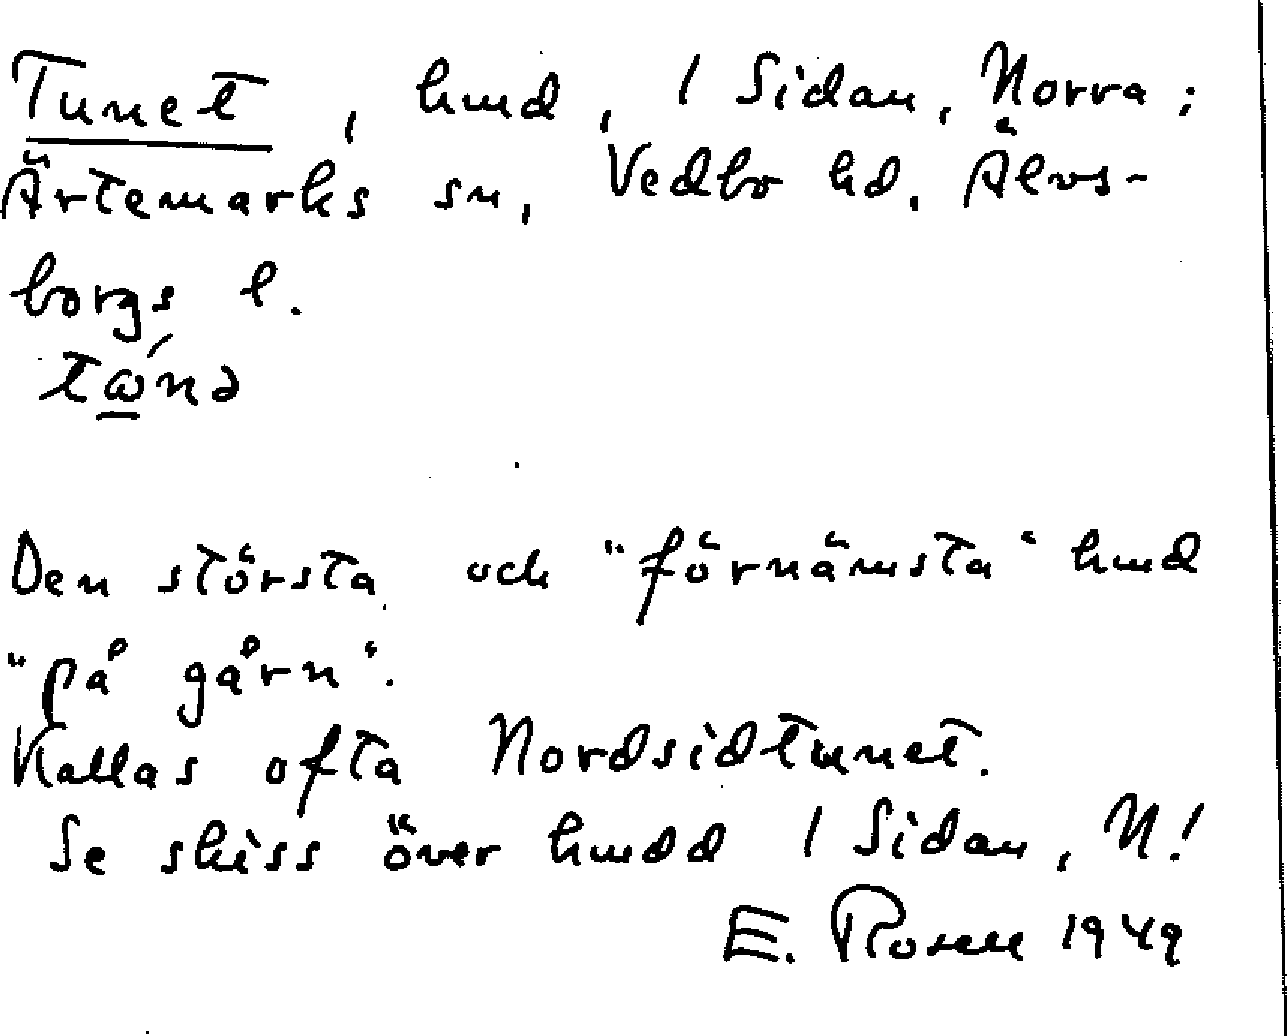 Tunet, hmd, 1 Sidan, Norra;
Ärtemarks sn, Vedbo hd. Älvs-
borgs l.
Den största och "förnämsta" hmd
"på gårn".
Kallas ofta Nordsidtunet.
Se skiss över hmdd 1 Sidan, N!
E. Rosell 1949